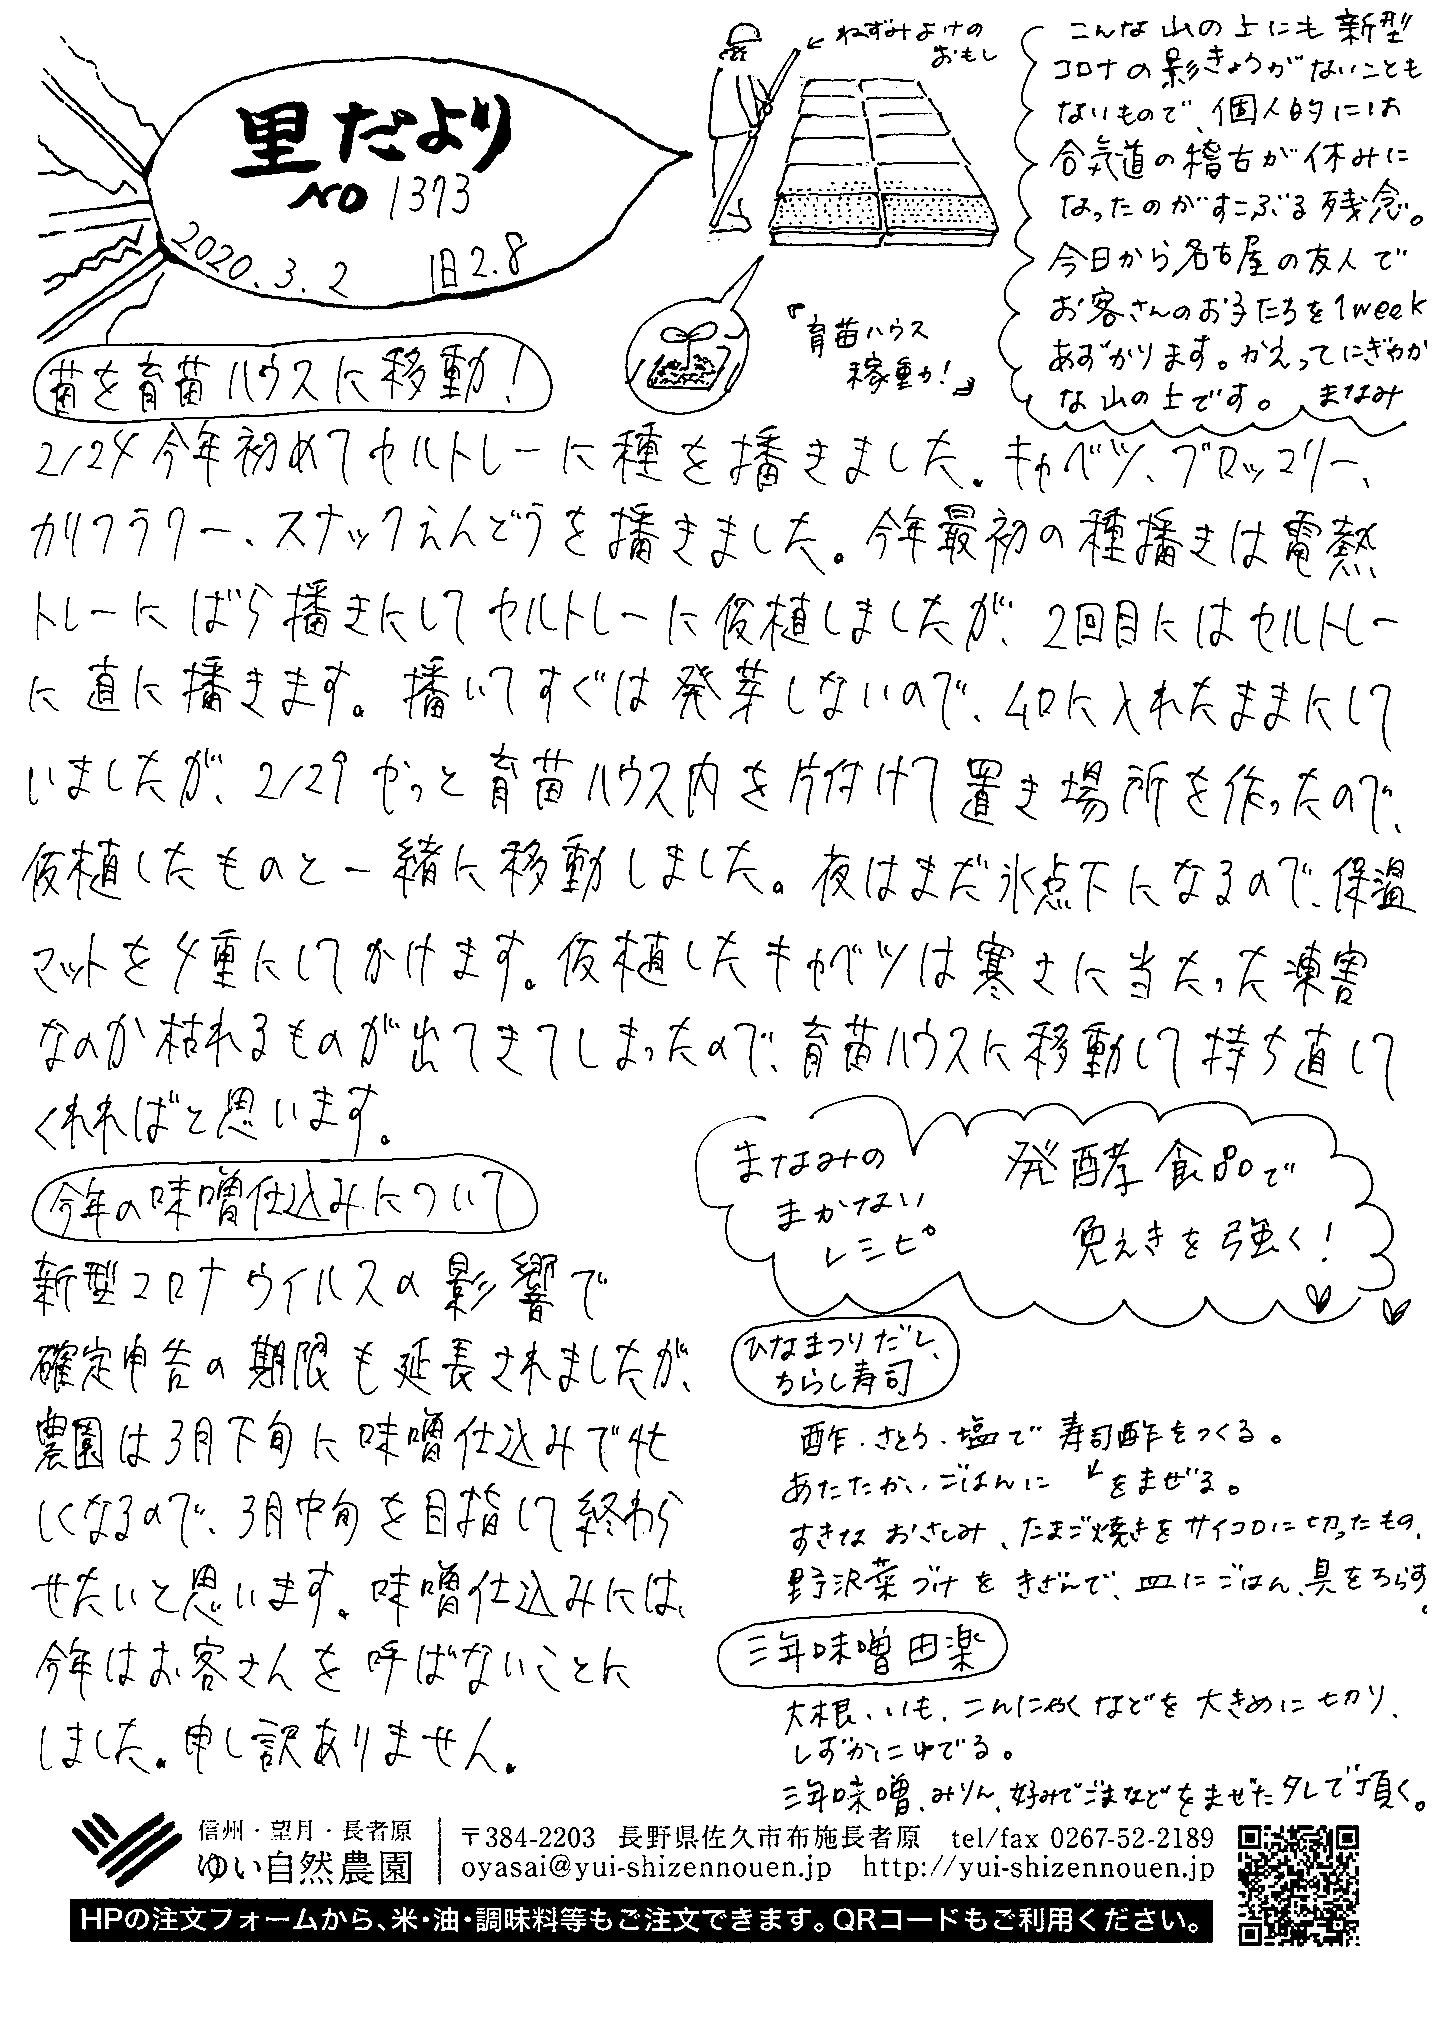 里だより
NO 1373
2020.3.2 旧2.8
ねずみよけの
おもし
『育苗ハウス
稼動!』
こんな山の上にも新型
コロナの影きょうがないことも
ないもので、個人的には
合気道の稽古が休みに
なったのがすこぶる残念。
今日から名古屋の友人で
お客さんのお子たちを1week
あずかります。かえってにぎやか
な山の上です。 まなみ
苗を育苗ハウスに移動!
2/24今年初めてセルトレーに種を播きました。キャベツ、ブロッコリー、
カリフラワー、スナックえんどうを播きました。今年最初の種播きは電熱
トレーにばら播きにしてセルトレーに仮植しましたが、2回目にはセルトレー
に直に播きます。播いてすぐは発芽しないので、ムロに入れたままにして
いましたが、2/29やっと育苗ハウス内を片付けて置き場所を作ったので、
仮植したものと一緒に移動しました。夜はまだ氷点下になるので、保温
マットを4重にしてかけます。仮植したキャベツは寒さに当たった凍害
なのか枯れるものが出てきてしまったので、育苗ハウスに移動して持ち直して
くれればと思います。
今年の味噌仕込みについて
新型コロナウイルスの影響で
確定申告の期限も延長されましたが、
農園は3月下旬に味噌仕込みで忙
しくなるので、3月中旬を目指して終わら
せたいと思います。味噌仕込みには、
今年はお客さんを呼ばないことに
しました。申し訳ありません。
まなみの
まかない
レシピ
発酵食品で
免えきを強く!
ひなまつりだし、
ちらし寿司
酢・さとう・塩で寿司酢をつくる。
あたたかいごはんに↙をまぜる。
すきな おさしみ、たまご焼きをサイコロに切ったもの、
野沢菜づけをきざんで、皿にごはん、具をちらす。
三年味噌田楽
大根、いも、こんにゃくなどを大きめに切り、
しずかにゆでる。
三年味噌、みりん、好みでごまなどをまぜたタレで頂く。
信州・望月・長者原
ゆい自然農園
〒384-2203 長野県佐久市布施長者原 tel/fax 0267-52-2189
oyasai@yui-shizennouen.jp http://yui-shizennouen.jp
HPの注文フォームから、米・油・調味料等もご注文できます。QRコードもご利用ください。